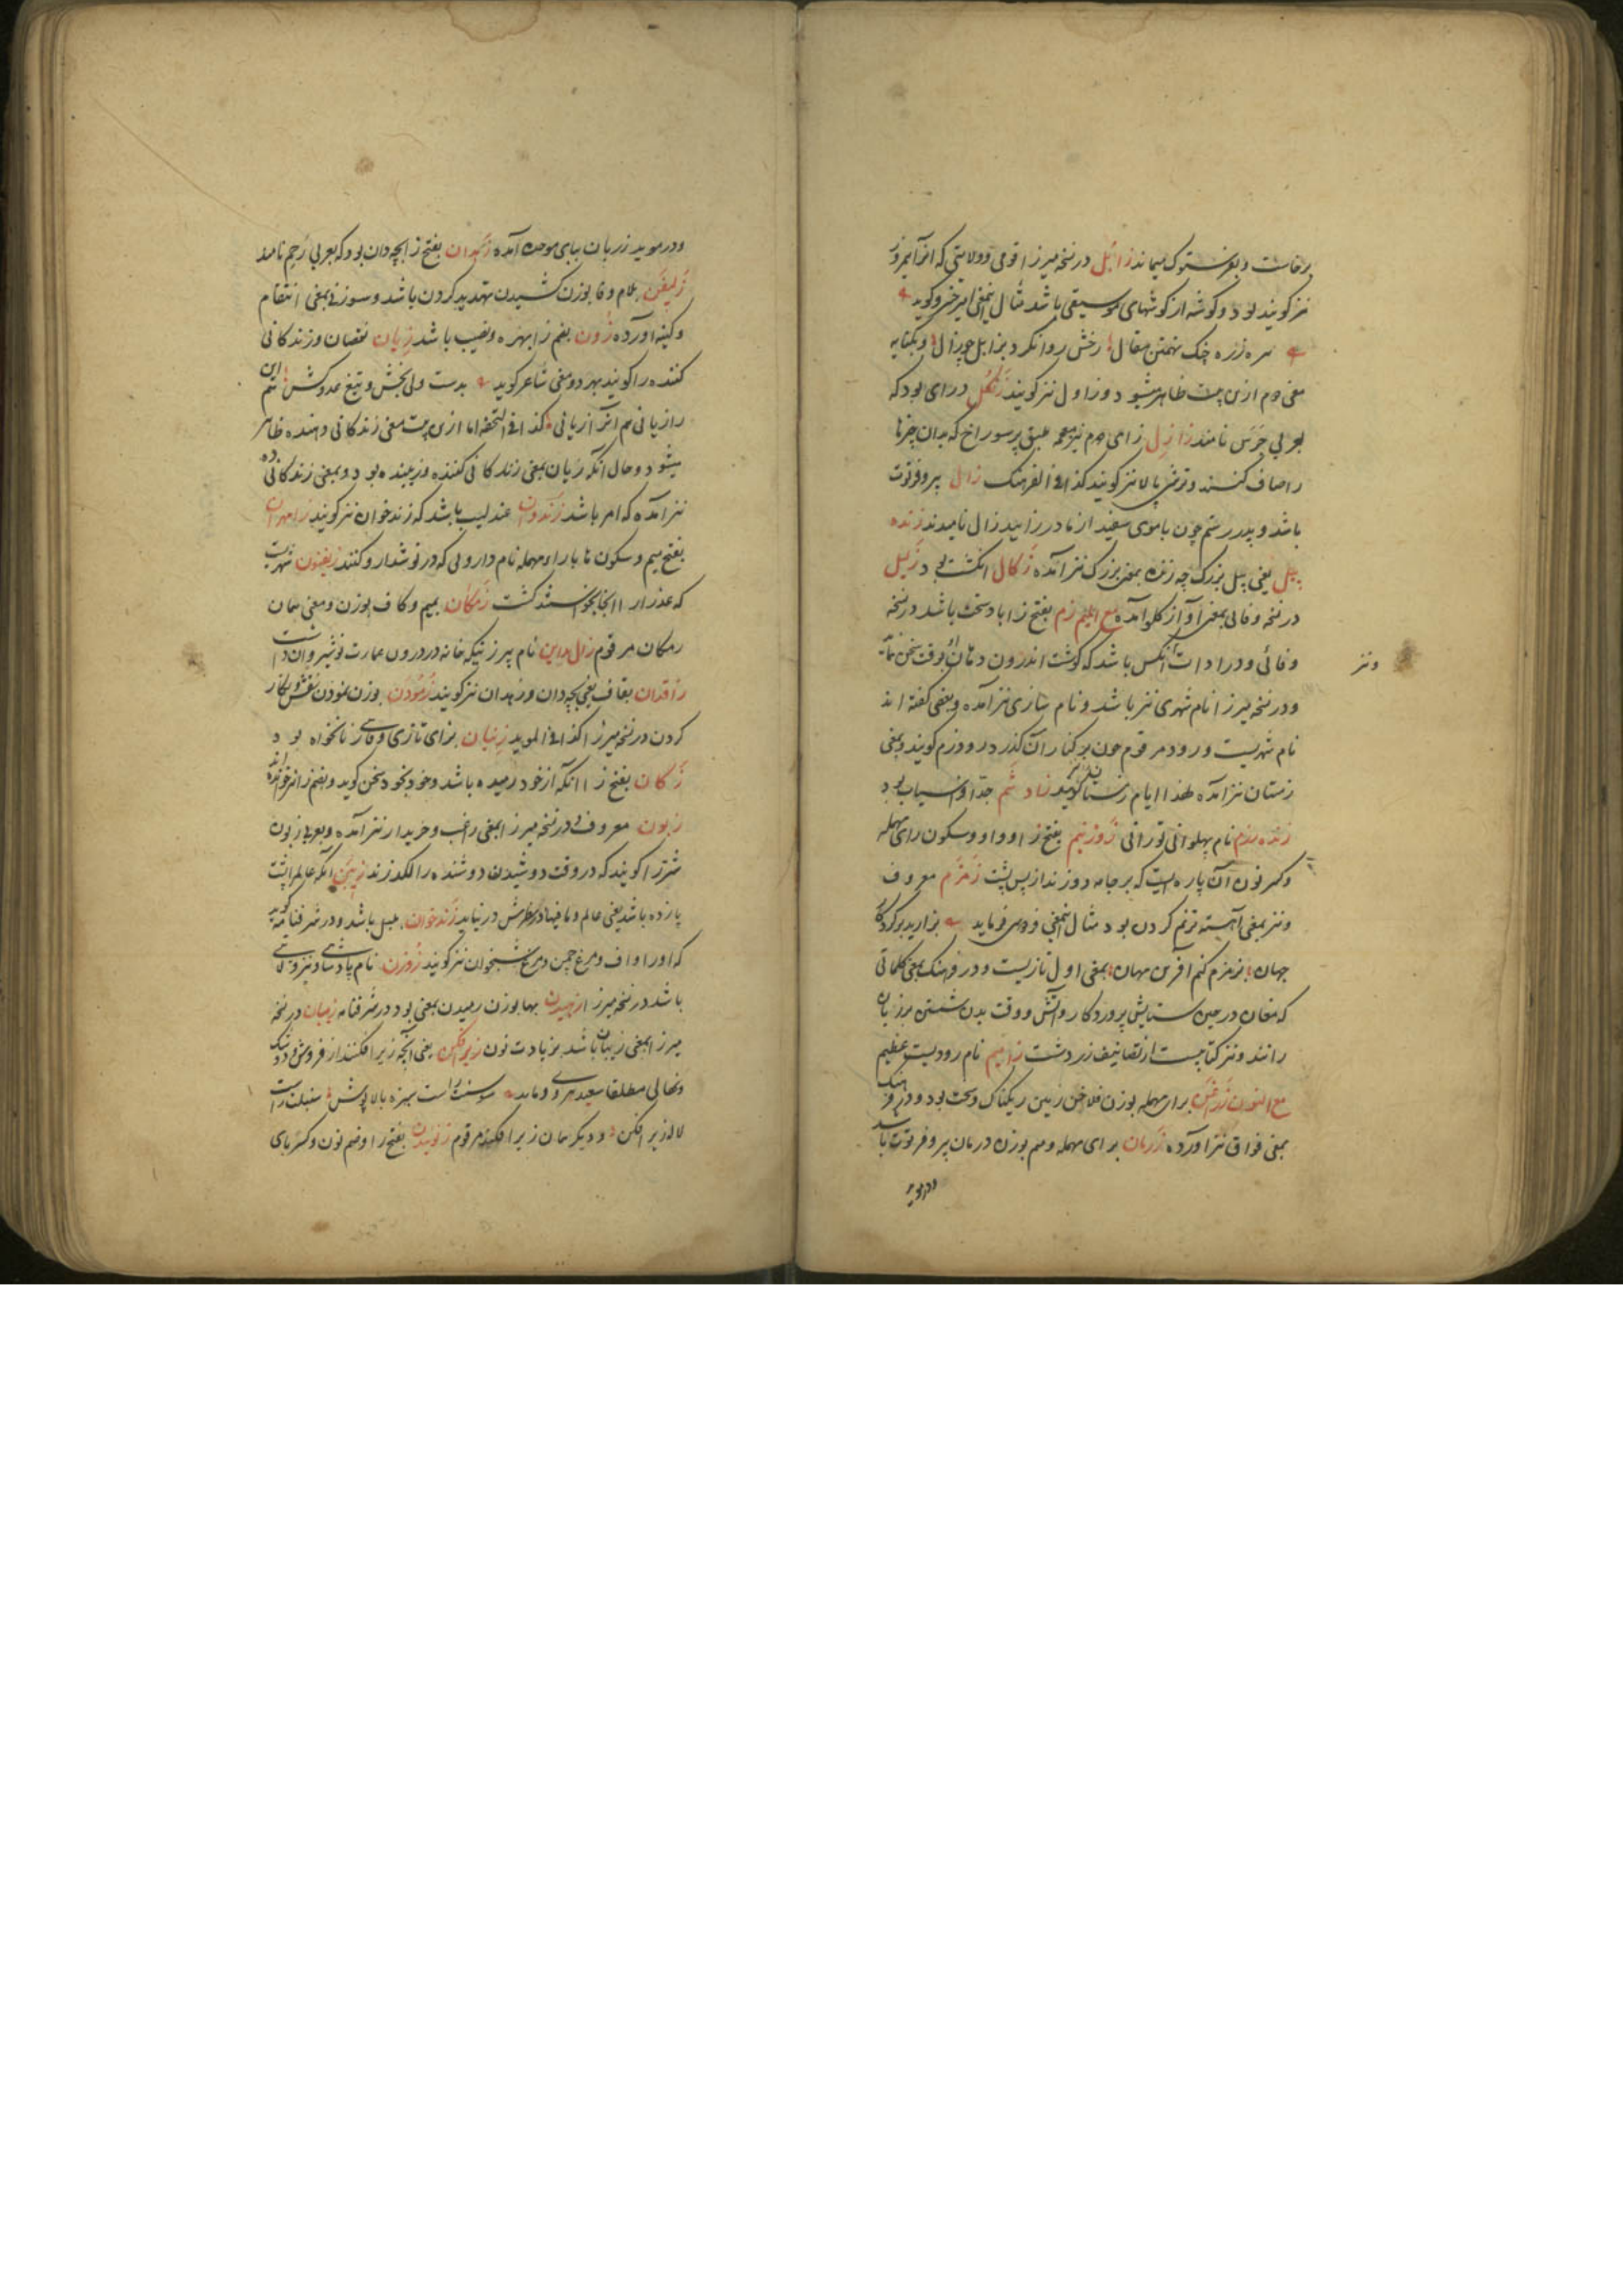 برخاست و بفرستوک میماند زابل در نسخه میرزا قومی و ولایتی که آنرا نیمروز
نیز گویند بود و گوشه از گوشهای موسیقی باشد مثال این معنی امیر خسرو گوید
سره زره جنگ تهمتن مقال رخش روان کرد بزابل چو زال و بکنایه
معنی دوم ازین بیت ظاهر میشود و زاول نیز گویند زنگل درای بود که
بعربی جرس نامند زازل زای دوم نیز معجمه طبق پر سوراخ که بدان چیزها
را صاف کنند و ترشی پالا نیز گویند کذا فی الفرهنگ زال پیر و فرتوت
باشد و پدر رستم چون با موی سفید از مادر زایید زال نامیدند زنده
پیل یعنی پیل بزرگ چه زنده بمعنی بزرگ نیز آمده زگال انگشت بود زلیل
در نسخه وفائی بمعنی آواز گلو آمده مع المیم زم بفتح زا باد سخت باشد در نسخه
وفائی و در ادات آنکس باشد که گوشت اندرون دهان او بوقت سخن
ونیز
و در نسخه میرزا نام شهری نیز باشد و نام بتازی نیز آمده و بعضی گفته اند
نام شهریست و رود مرقوم چون بر کنار آن گذرد رود زم گویند و بمعنی
زمستان نیز آمده لهذا ایام زمستان گویند زاد شم جد افراسیاب بود
زنده رزم نام پهلوانی تورانی زورنیم بفتح زا و واو و سکون رای مهمله
و کسر نون آن پاره ایست که بر جامه دوزند از پس پشت زمزم معروف
و نیز بمعنی آهسته ترنم کردن بود مثال این معنی فردوسی فرماید بزاریدبر کردگار
جهان بزمزم کنم آفرین مهان بمعنی اول تازیست و در فرهنگ بمعنی کلماتی
که مغان در حین ستایش پروردگار و آتش و وقت بدن شستن بر زبان
رانند و نیز کتابیست از تصانیف زردشت زامیم نام رودیست عظیم
مع النون زرغن برای مهمله بوزن فلاخن زمین ریگناک و سخت بود و در فرهنگ
بمعنی فواق نیز آورده زرمان برای مهمله و میم بوزن درمان پیر و فرتوت باشد
در موید
و در موید زربان ببای موحده آمده زهدان بفتح زا بچه دان بود که بعربی رحم نامند
زلیفن بلام و فا بوزن کشیدن تهدید کردن باشد و سوزنی بمعنی انتقام
و کینه آورده زون بضم زا بهره و نصیب باشد زیان نقصان و زندگانی
کننده را گویند بهر دو معنی شاعر گوید بدست ولی بخش و تیغ عدو کش این
را زیانی هم آنرا زیانی کذا فی التحفه اما ازین بیت معنی زندگانی دهنده ظاهر
میشود و حال آنکه زیان بمعنی زندگانی کننده و زیبنده بود و بمعنی زندگانی ده
نیز آمده که امر باشد زندوان عندلیب باشد که زندخوان نیز گویند زامهران
بفتح میم و سکون ها با راء مهمله نام داروئی که در نوشدارو کنند زیغنون شهریست
که عذرا را آنجا بخواستند کشت زمکان بمیم و کاف بوزن و معنی همان
رمکان مرقوم زال مداین نام پیرزنیکه خانه در درون عمارت نوشیروان داشت
زاقدان بقاف یعنی بچه دان و زهدان نیز گویند زمودن بوزن نمودن نقش و نگار
کردن در نسخه میرزا کذا فی الموید زنیان بزای تازی و فارسی نانخواه بود
زکان بفتح زا آنکه از خود رمیده باشد و خود بخود سخن گوید و بضم زا نیز خوانده اند
زبون معروف و در نسخه میرزا بمعنی راغب و خریدار نیز آمده و بعربی زبون
شتر را گویند که در وقت دوشیدن دوشنده را لگد زند زیبن آنکه عالم را پشت
پا زده باشد یعنی عالم و ما فیها در نظرش در نیاید زندخوان بلبل باشد و در شرفنامه گوید
که او را واف و مرغ چمن و مرغ شبخوان نیز گویند زوزن نام پادشاهی و نیز ولایتی
باشد در نسخه میرزا زهیدن بها بوزن رمیدن بمعنی بود در شرفنامه زیبان در نسخه
میرزا بمعنی زیبا باشد بزیادت نون زیر افکن یعنی آنچه زیر افکنند از فروش و دوشک
و نهالی مطلقا سعید هروی فرماید سوسنت راست سبزه بالاپوش سنبلت راست
لاله زیر افکن و دیگر همان زیرا فکند مرقوم زنوییدن بفتح زا و ضم نون و کسر یای